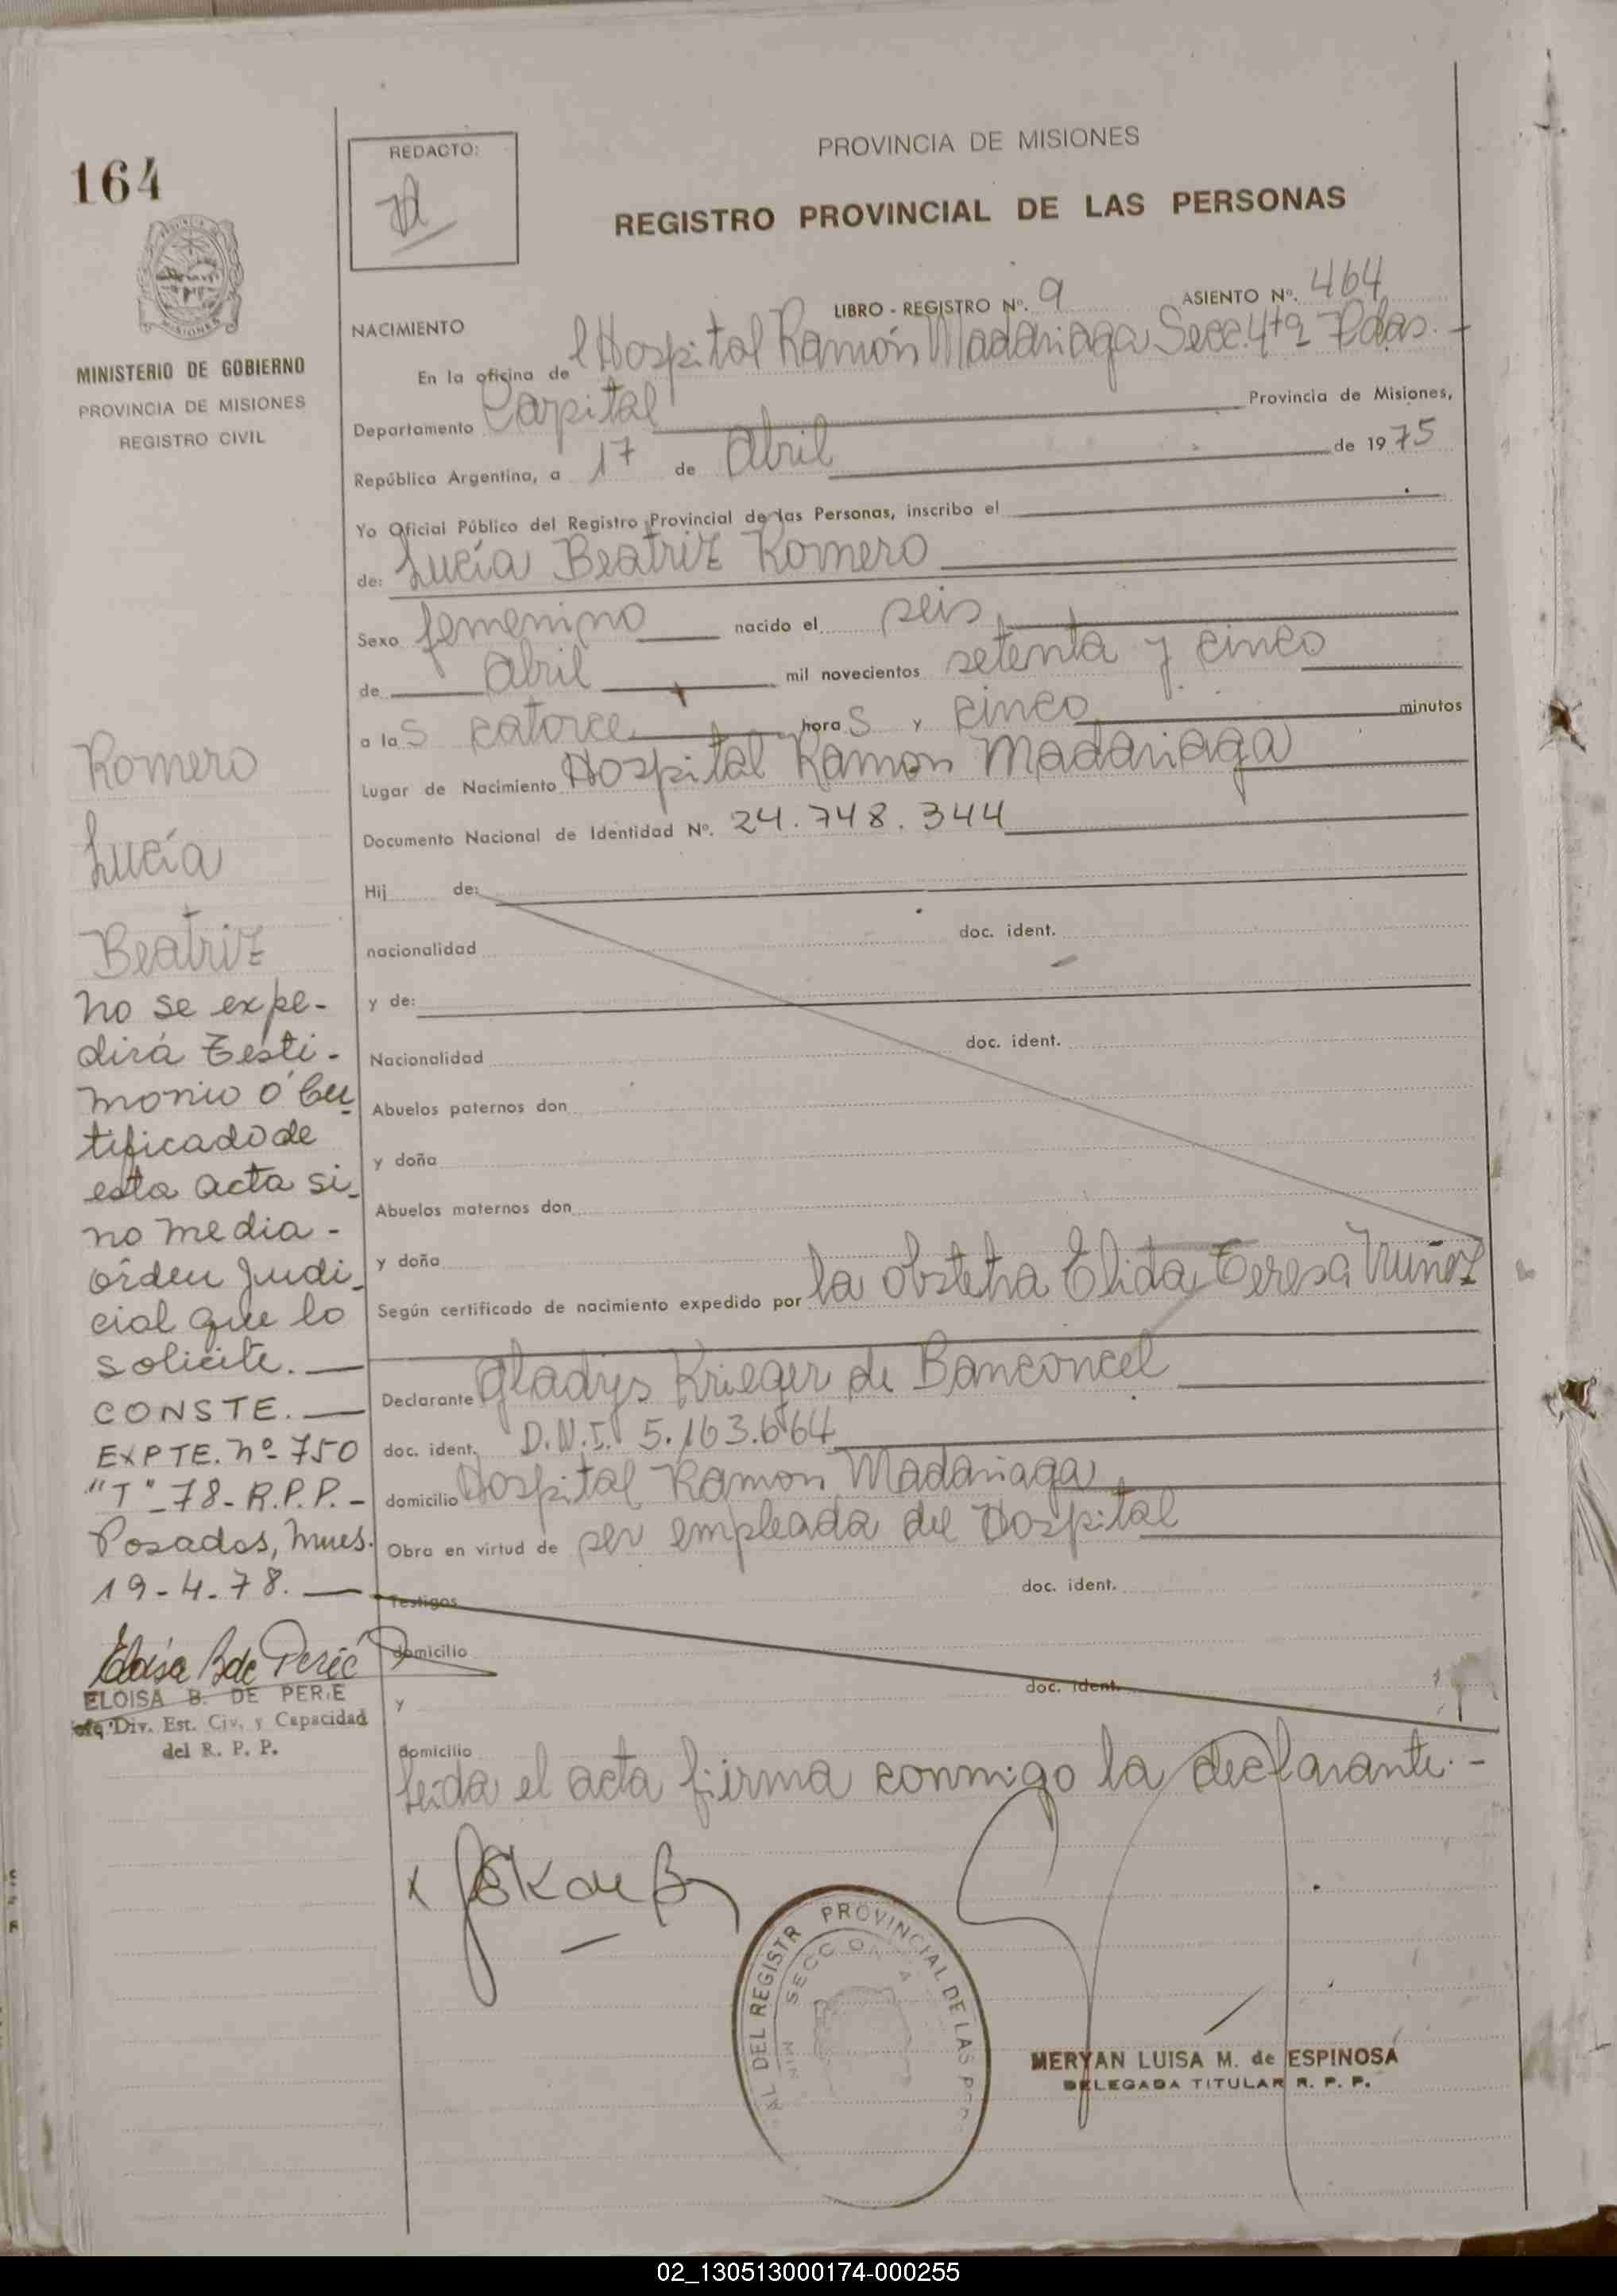 164
REDACTO:
PROVINCIA DE MISIONES
REGISTRO PROVINCIAL DE LAS PERSONAS
MISIONES
MINISTERIO DE GOBIERNO
PROVINCIA DE MISIONES
REGISTRO CIVIL
LIBRO - REGISTRO Nº. 9 ASIENTO Nº. 464
NACIMIENTO
En la oficina del Hospital Ramón Madariaga Secc. 4ta Pdas.-
Departamento Capital Provincia de Misiones,
República Argentina, a 17 de Abril de 1975
Yo Oficial Público del Registro Provincial de las Personas, inscribo el
de: Lucía Beatriz Romero
Sexo femenino nacido el seis
de Abril mil novecientos setenta y cinco
a las catorce horas y cinco minutos
Lugar de Nacimiento Hospital Ramon Madariaga
Documento Nacional de Identidad Nº. 24.748.344
Hij de:
nacionalidad doc. ident.
y de:
Nacionalidad doc. ident.
Abuelos paternos don
y doña
Abuelos maternos don
y doña
Según certificado de nacimiento expedido por la obstetra Elida Teresa Nuñez
Declarante Gladys Krieger de Banconcel
doc. ident. D.N.I. 5.163.664
domicilio Hospital Ramon Madariaga
Obra en virtud de ser empleada del Hospital
doc. ident.
Testigos
domicilio
doc. ident.
y
domicilio
Leida el acta firma conmigo la declarante.-
Romero
Lucía
Beatriz
No se expe-
dirá Testi-
monio ó Cer
tificado de
esta acta si-
no media-
órden Judi-
cial que lo
solicite.
CONSTE.
EXPTE. Nº 750
"T"-78-R.P.P.-
Posadas, Mnes.
19-4-78.
Eloisa B de Perié
ELOISA B. DE PERIE
Div. Est. Civ. y Capacidad
del R. P. P.
DEL REGISTR PROVINCIAL DE LAS
MERYAN LUISA M. de ESPINOSA
DELEGADA TITULAR R. P. P.
02_130513000174-000255